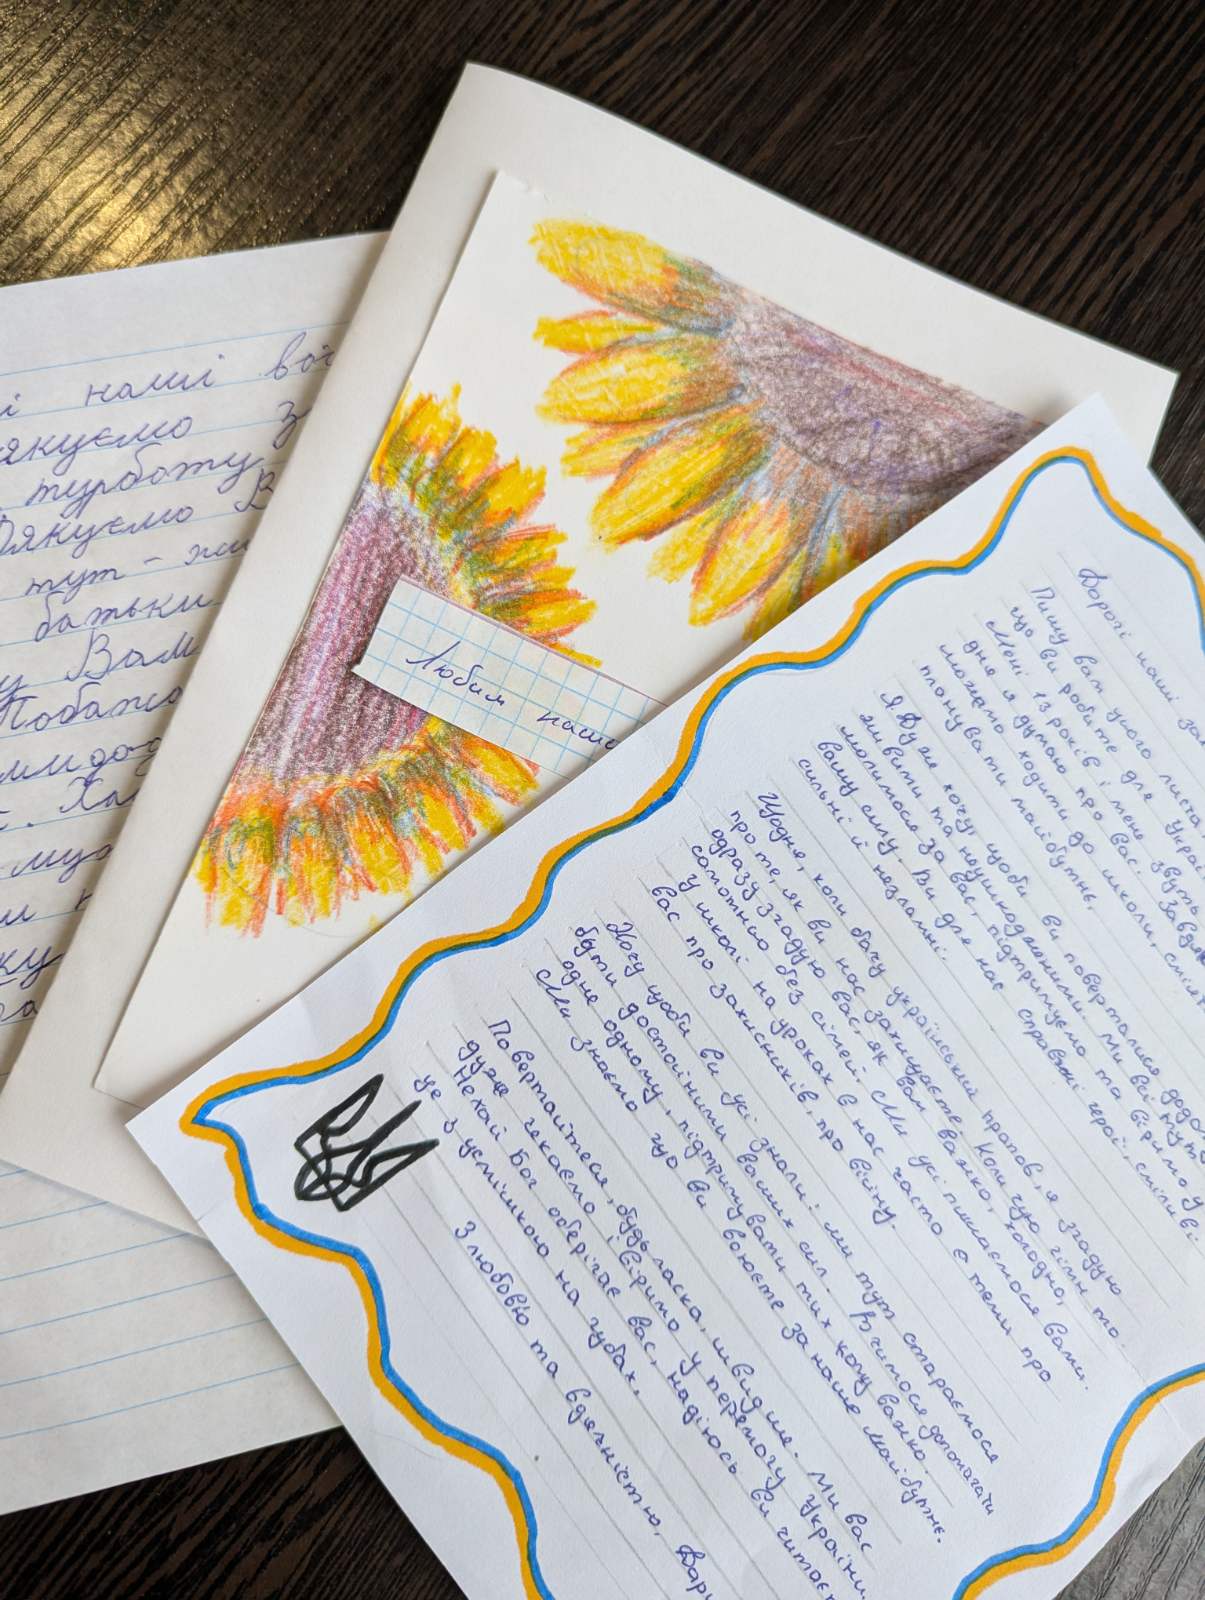 і наші
якуємо з
турботу
Дякуємо В
тут - жи
батьки
у Вам
Побажа
Любим наш
Дорогі наші за
Пишу вам цього листа
що ви робите для Украї
Мені 13 років і мене звуть
дня я думаю про вас. Завдяк
можемо ходити до школи, смія
планувати майбутнє.
Я Дуже хочу, щоби ви поверталися додо
живими та неушкодженими. Ми всі тут
молимося за вас, підтримуємо та віримо у
вашу силу. Ви для нас справжні герої, сміливі
сильні й незламні.
Щодня, коли бачу український прапов, я згадую
про те, як ви нас захищаєте. Коли чую гімн то
одразу згадую вас, як вам важко, холодно,
самотньо без сімей. Ми усі пишаємося вами.
У школі на уроках в нас часто є теми про
вас про захисників, про війну.
Хочу щоби ви усі знали: ми тут стараємося
бути достойними ваших сил. Вчимося допомагати
одне одному, підтримувати тих кому важко.
Ми знаємо що ви воюєте за наше майбутнє.
Повертайтеся, будьласка, швидше. Ми вас
дуже чекаємо і віримо у перемогу України.
Нехай Бог оберігає вас, надіюсь ви читаєт
це з усмішкою на губах.
З любовʼю та вдячністю, Дар